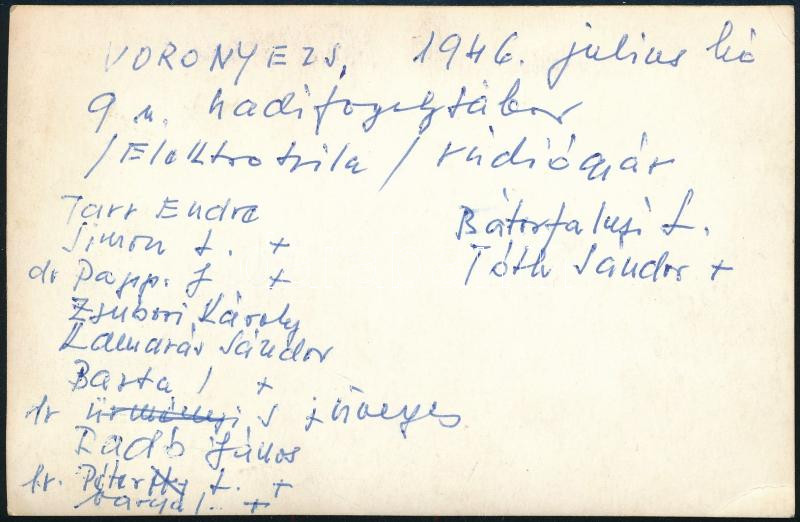 VORONYEZS, 1946. julius hó
9 u. hadifogolytábor
/Elektrosila/ rádiógyár
Tarr Endre
Simon L. +
dr Papp. J +
Zsubori Károly
Kamarás Sándor
Barta I +
dr Ürményi S üveges
Radó János
dr. Péterffy L. +
Varga I. +
Bátorfalusi L.
Tóth Sándor +